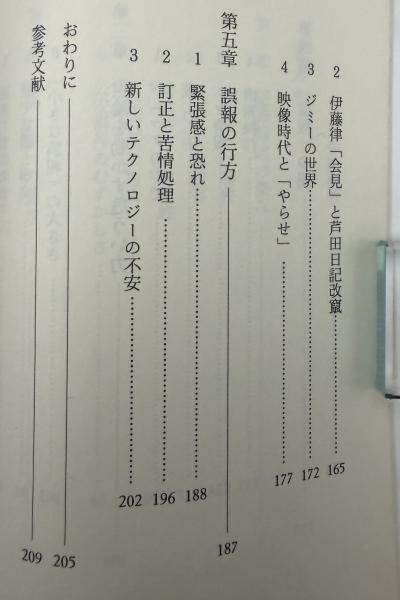 2 伊藤律「会見」と芦田日記改竄……165
3 ジミーの世界……172
4 映像時代と「やらせ」……177
第五章 誤報の行方 187
1 緊張感と恐れ……188
2 訂正と苦情処理……196
3 新しいテクノロジーの不安……202
おわりに 205
参考文献 209